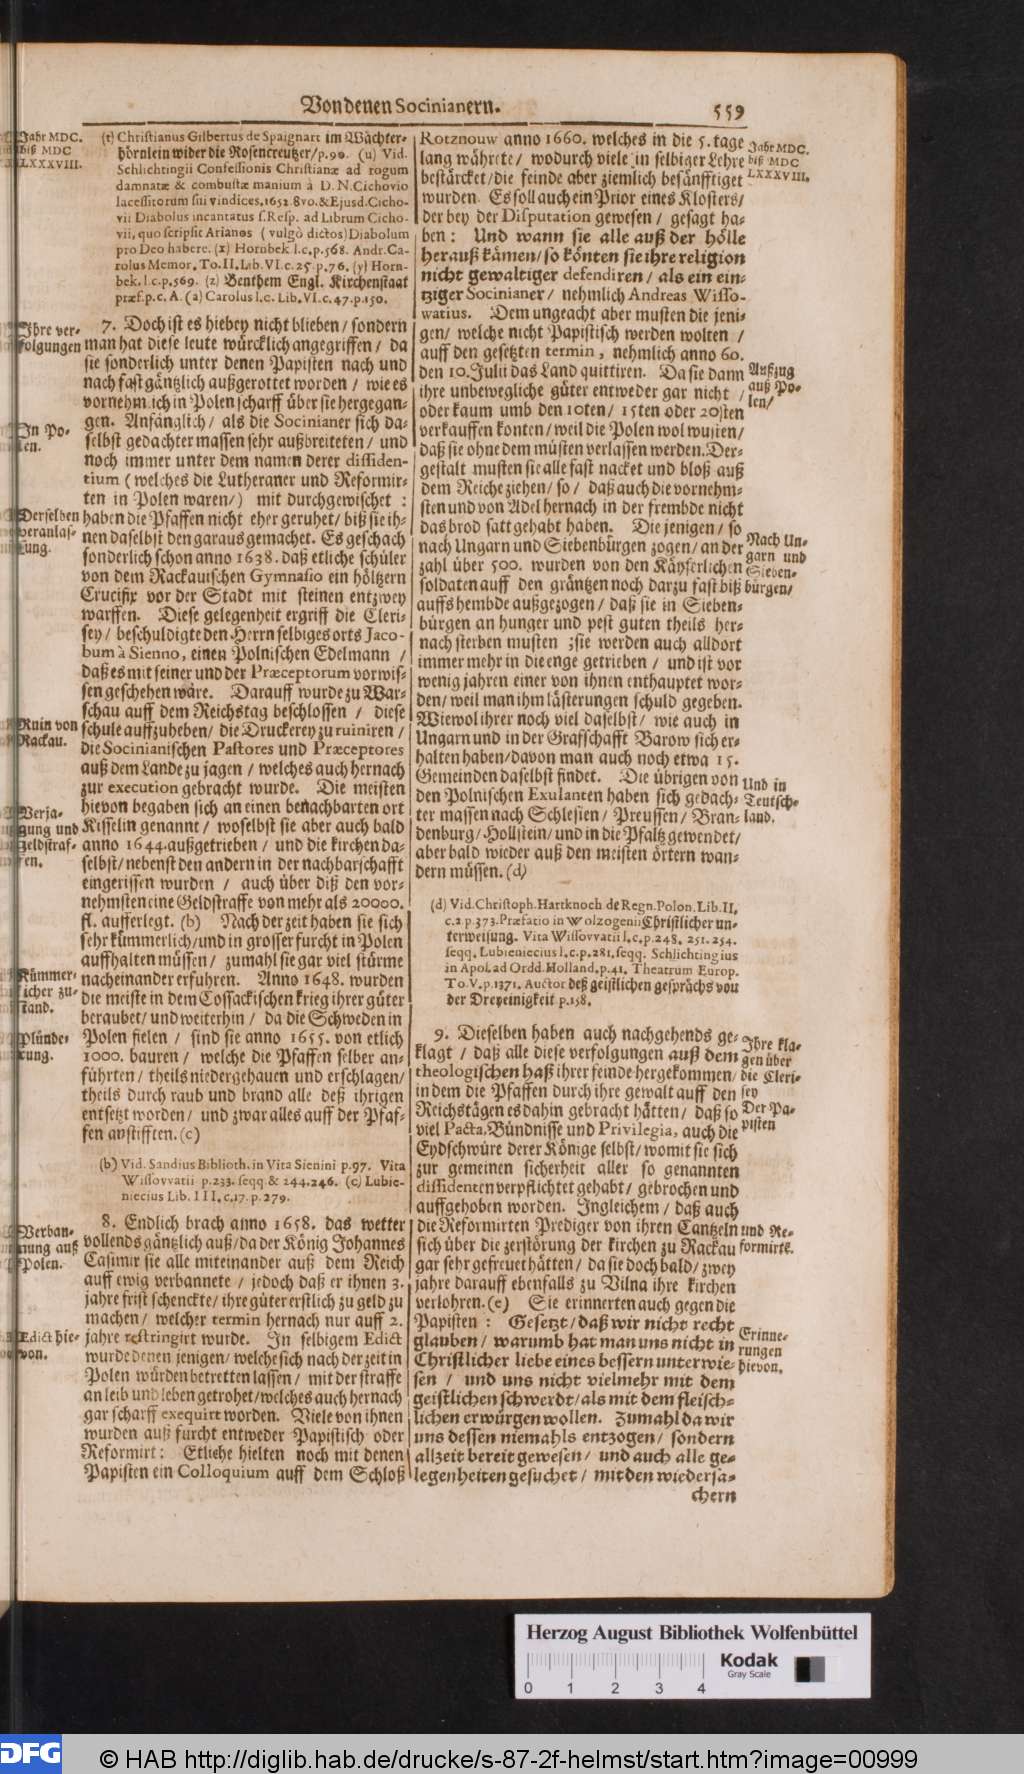 Von denen Socinianern.
559
Jahr MDC.
biß MDC
LXXXVIII.
(t) Christianus Gilbertus de Spaignart im Wächter-
hörnlein wider die Rosencreutzer/p.90. (u) Vid.
Schlichtingii Confessionis Christianæ ad rogum
damnatæ & combustæ manium à D. N. Cichovio
lacessitorum sui vindices, 1652. 8vo. & Ejusd. Cicho-
vii Diabolus incantatus s. Resp. ad Librum Cicho-
vii, quo scripsit Arianos (vulgò dictos) Diabolum
pro Deo habere. (x) Hornbek. l.c.p.568. Andr. Ca-
rolus Memor. To.II. Lib.VI.c.25.p.76. (y) Horn-
bek. l.c.p.569. (z) Benthem Engl. Kirchenstaat
præf.p.c.A. (a) Carolus l.c. Lib.VI.c.47.p.150.
Ihre ver-
folgungen
7. Doch ist es hiebey nicht blieben/ sondern
man hat diese leute würcklich angegriffen/ da
sie sonderlich unter denen Papisten nach und
nach fast gäntzlich außgerottet worden/ wie es
vornehmlich in Polen scharff über sie hergegan-
gen. Anfänglich/ als die Socinianer sich da-
selbst gedachter massen sehr außbreiteten/ und
noch immer unter dem namen derer dissiden-
tium (welches die Lutheraner und Reformir-
ten in Polen waren/) mit durchgewischet:
haben die Pfaffen nicht eher geruhet/ biß sie ih-
nen daselbst den garaus gemachet. Es geschach
sonderlich schon anno 1638. daß etliche schüler
von dem Rackauischen Gymnasio ein höltzern
Crucifix vor der Stadt mit steinen entzwey
warffen. Diese gelegenheit ergriff die Cleri-
sey/ beschuldigte den Herrn selbiges orts Jaco-
bum à Sienno, einen Polnischen Edelmann/
daß es mit seiner und der Præceptorum vorwis-
sen geschehen wäre. Darauff wurde zu War-
schau auff dem Reichstag beschlossen/ diese
schule auffzuheben/ die Druckerey zu ruiniren/
die Socinianischen Pastores und Præceptores
auß dem Lande zu jagen/ welches auch hernach
zur execution gebracht wurde. Die meisten
hievon begaben sich an einen benachbarten ort
Kisselin genannt/ woselbst sie aber auch bald
anno 1644. außgetrieben/ und die kirchen da-
selbst/ nebenst den andern in der nachbarschafft
eingerissen wurden/ auch über diß den vor-
nehmsten eine Geldstraffe von mehr als 20000.
fl. aufferlegt. (b) Nach der zeit haben sie sich
sehr kümmerlich/ und in grosser furcht in Polen
auffhalten müssen/ zumahl sie gar viel stürme
nacheinander erfuhren. Anno 1648. wurden
die meiste in dem Cossackischen krieg ihrer güter
beraubet/ und weiterhin/ da die Schweden in
Polen fielen/ sind sie anno 1655. von etlich
1000. bauren/ welche die Pfaffen selber an-
führten/ theils niedergehauen und erschlagen/
theils durch raub und brand alle deß ihrigen
entsetzt worden/ und zwar alles auff der Pfaf-
fen anstifften. (c)
In Po-
len.
Derselben
veranlas-
sung.
Ruin von
Rackau.
Verja-
gung und
geldstraf-
fen.
Kümmer-
licher zu-
stand.
Plünde-
rung.
(b) Vid. Sandius Biblioth. in Vita Sienini p.97. Vita
Wissovvatii p.233. seqq. & 244.246. (c) Lubie-
niecius Lib. III. c.17. p.279.
Verban-
nung auß
Polen.
Edict hie-
von.
8. Endlich brach anno 1658. das wetter
vollends gäntzlich auß/ da der König Johannes
Casimir sie alle miteinander auß dem Reich
auff ewig verbannete/ jedoch daß er ihnen 3.
jahre frist schenckte/ ihre güter erstlich zu geld zu
machen/ welcher termin hernach nur auff 2.
jahre restringirt wurde. In selbigem Edict
wurde denen jenigen/ welche sich nach der zeit in
Polen würden betretten lassen/ mit der straffe
an leib und leben getrohet/ welches auch hernach
gar scharff exequirt worden. Viele von ihnen
wurden auß furcht entweder Papistisch oder
Reformirt: Etliche hielten noch mit denen
Papisten ein Colloquium auff dem Schloß
Rotznouw anno 1660. welches in die 5. tage
lang währete/ wodurch viele in selbiger Lehre
bestärcket/ die feinde aber ziemlich besänfftiget
wurden. Es soll auch ein Prior eines Klosters/
der bey der Disputation gewesen/ gesagt ha-
ben: Und wann sie alle auß der hölle
herauß kämen/ so könten sie ihre religion
nicht gewaltiger defendiren/ als ein ein-
tziger Socinianer/ nehmlich Andreas Wisso-
watius. Dem ungeacht aber musten die jeni-
gen/ welche nicht Papistisch werden wolten/
auff den gesetzten termin, nehmlich anno 60.
den 10. Julii das Land quittiren. Da sie dann
ihre unbewegliche güter entweder gar nicht/
oder kaum umb den 10ten/ 15ten oder 20sten
verkauffen konten/ weil die Polen wol wusten/
daß sie ohne dem müsten verlassen werden. Der-
gestalt musten sie alle fast nacket und bloß auß
dem Reiche ziehen/ so/ daß auch die vornehm-
sten und von Adel hernach in der frembde nicht
das brod satt gehabt haben. Die jenigen/ so
nach Ungarn und Siebenbürgen zogen/ an der
zahl über 500. wurden von den Käyserlichen
soldaten auff den gräntzen noch darzu fast biß
auffs hembde außgezogen/ daß sie in Sieben-
bürgen an hunger und pest guten theils her-
nach sterben musten; sie werden auch alldort
immer mehr in die enge getrieben/ und ist vor
wenig jahren einer von ihnen enthauptet wor-
den/ weil man ihm lästerungen schuld gegeben.
Wiewol ihrer noch viel daselbst/ wie auch in
Ungarn und in der Grafschafft Barow sich er-
halten haben/ davon man auch noch etwa 15.
Gemeinden daselbst findet. Die übrigen von
den Polnischen Exulanten haben sich gedach-
ter massen nach Schlesien/ Preussen/ Bran-
denburg/ Hollstein/ und in die Pfaltz gewendet/
aber bald wieder auß den meisten örtern wan-
dern müssen. (d)
Jahr MDC.
biß MDC
LXXXVIII.
Außzug
auß Po-
len/
Nach Un-
garn und
Sieben-
bürgen/
Und in
Teutsch-
land.
(d) Vid. Christoph. Hartknoch de Regn. Polon. Lib. II.
c.2 p.373. Præfatio in Wolzogenii Christlicher un-
terweisung. Vita Wissovvatii l.c.p.248. 251. 254.
seqq. Lubieniecius l.c.p.281. seqq. Schlichtingius
in Apol. ad Ordd. Holland. p.41. Theatrum Europ.
To.V.p.1371. Auctor deß geistlichen gesprächs von
der Dreyeinigkeit p.158.
9. Dieselben haben auch nachgehends ge-
klagt/ daß alle diese verfolgungen auß dem
theologischen haß ihrer feinde hergekommen/
in dem die Pfaffen durch ihre gewalt auff den
Reichstägen es dahin gebracht hätten/ daß so
viel Pacta, Bündnisse und Privilegia, auch die
Eydschwüre derer Könige selbst/ womit sie sich
zur gemeinen sicherheit aller so genannten
dissidenten verpflichtet gehabt/ gebrochen und
auffgehoben worden. Ingleichem/ daß auch
die Reformirten Prediger von ihren Cantzeln
sich über die zerstörung der kirchen zu Rackau
gar sehr gefreuet hätten/ da sie doch bald/ zwey
jahre darauff ebenfalls zu Vilna ihre kirchen
verlohren. (e) Sie erinnerten auch gegen die
Papisten: Gesetzt/ daß wir nicht recht
glauben/ warumb hat man uns nicht in
Christlicher liebe eines bessern unterwie-
sen/ und uns nicht vielmehr mit dem
geistlichen schwerdt/ als mit dem fleisch-
lichen erwürgen wollen. Zumahl da wir
uns dessen niemahls entzogen/ sondern
allzeit bereit gewesen/ und auch alle ge-
legenheiten gesuchet/ mit den wiedersa-
chern
Ihre kla-
gen über
die Cleri-
sey
Der Pa-
pisten
und Re-
formirte.
Erinne-
rungen
hievon.
Herzog August Bibliothek Wolfenbüttel
Kodak
Gray Scale
0 1 2 3 4
DFG
© HAB http://diglib.hab.de/drucke/s-87-2f-helmst/start.htm?image=00999